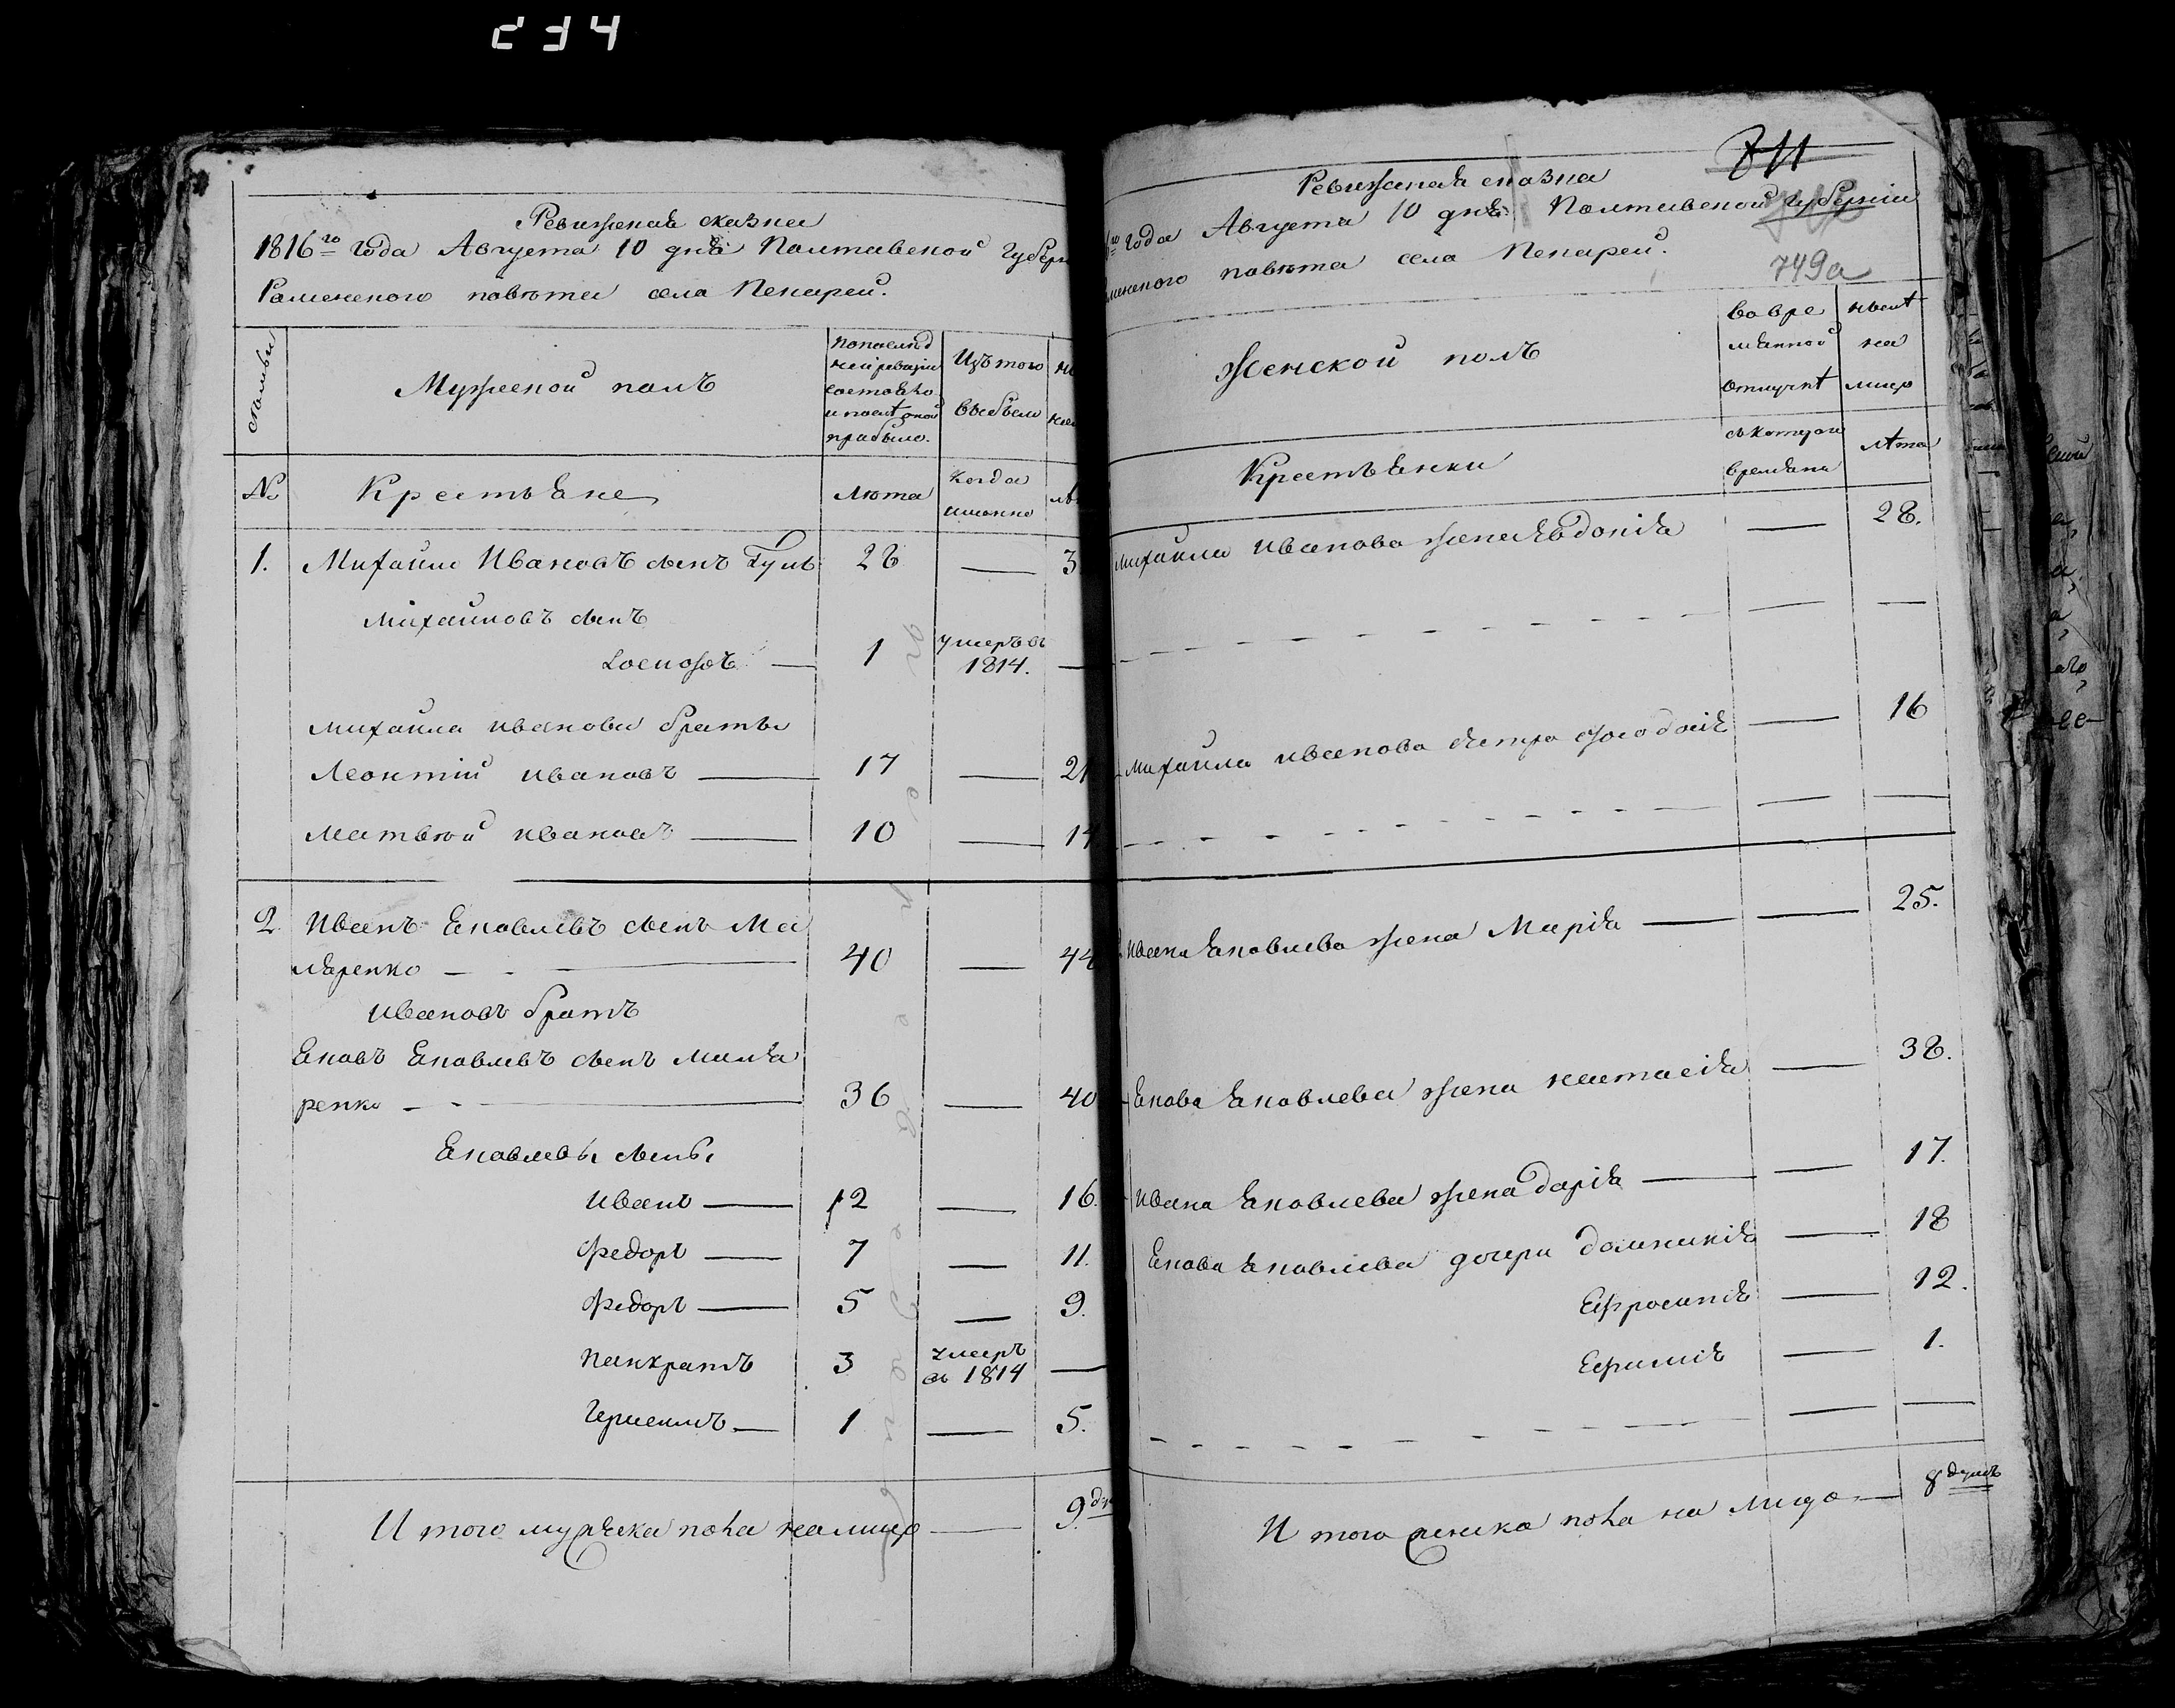 234
Ревижская сказка
1816го года Августа 10 дня Полтавской Губерн
Роменского повѣта села Пекарей.
Мужеской полъ
Изъ того
выбыли
№
Крестьяне
Лѣта
Когда
именно
1. Михайло Ивановъ сынъ 28 — 3
Михайловъ сынъ
Іосифъ — 1 умеръ въ
1814. —
Михайла Иванова братья
Леонтій Ивановъ — 17 — 21
Матвѣй Ивановъ — 10 — 14
2. Иванъ Яковлевъ сынъ Ма
ляренко — 40 — 44
Ивановъ братъ
Яковъ Яковлевъ сынъ Маля
ренко — 36 — 40
Яковлевы сыны
Иванъ — 12 — 16.
Федоръ — 7 — 11.
Федоръ — 5 — 9.
Панкратъ 3 умеръ
въ 1814 —
1 — 5.
И того мужеска пола на лицо — 9.
711
Ревижская сказка
го года Августа 10 дня Полтавской Губерніи
749а
оменского повѣта села Пекарей.
Женской полъ
Во вре
менной
отлучкѣ
нынѣ
на
лицо
Крестьянки
съ котораго
времени
лѣта
Михайла Иванова жена Евдокія — 28.
— —
Михайла Иванова сестра Феодосія — 16
— —
Ивана Яковлева жена Марія — — 25.
Якова Яковлева жена Настасія — 38.
Ивана Яковлева жена Дарія — — 17.
Якова Яковлева дочери Домникія — 18
Ефросинія — 12.
Ефимія — 1.
— —
И того женска пола на лицо — 8 душъ